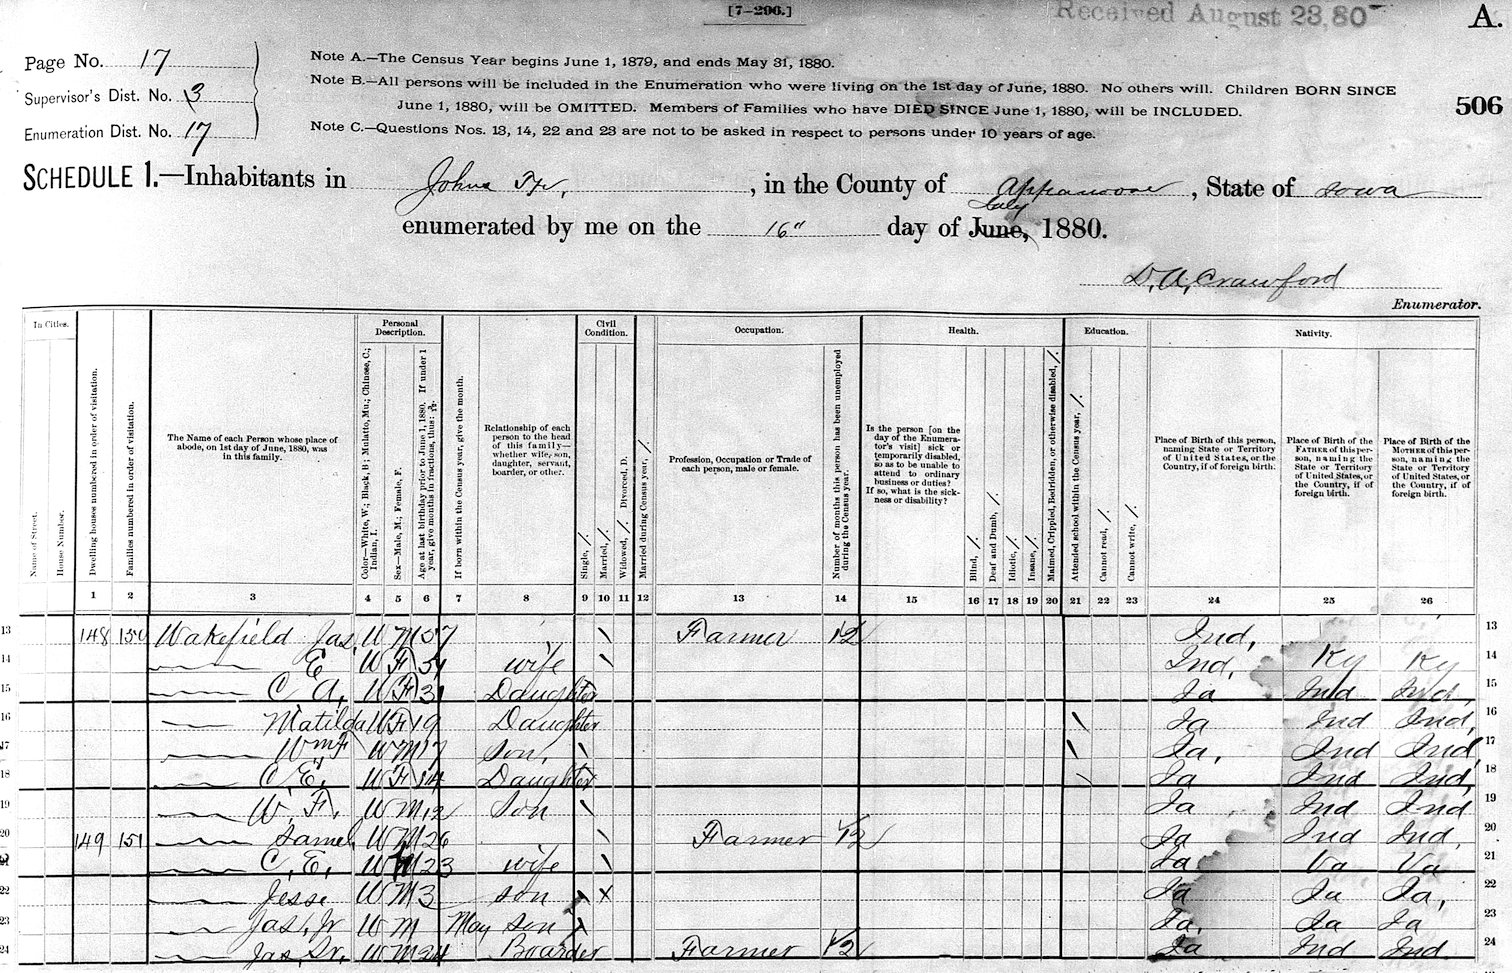 [7-296.]
Received August 23, 80
A.
Page No. 17
Supervisor's Dist. No. 3
Enumeration Dist. No. 17
Note A.—The Census Year begins June 1, 1879, and ends May 31, 1880.
Note B.—All persons will be included in the Enumeration who were living on the 1st day of June, 1880. No others will. Children BORN SINCE
June 1, 1880, will be OMITTED. Members of Families who have DIED SINCE June 1, 1880, will be INCLUDED.
Note C.—Questions Nos. 13, 14, 22 and 23 are not to be asked in respect to persons under 10 years of age.
506
SCHEDULE 1.—Inhabitants in Johns Tp, in the County of Appanoose, State of Iowa
enumerated by me on the 16" day of June, July 1880.
D. A. Crawford
Enumerator.
In Cities.
Name of Street.
House Number.
Dwelling houses numbered in order of visitation.
Families numbered in order of visitation.
The Name of each Person whose place of abode, on 1st day of June, 1880, was in this family.
Personal Description.
Color—White, W.; Black, B.; Mulatto, Mu.; Chinese, C.; Indian, I.
Sex—Male, M.; Female, F.
Age at last birthday prior to June 1, 1880. If under 1 year, give months in fractions, thus: 3/12.
If born within the Census year, give the month.
Relationship of each person to the head of this family—whether wife, son, daughter, servant, boarder, or other.
Civil Condition.
Single, /.
Married, /.
Widowed, /. Divorced, D.
Married during Census year, /.
Occupation.
Profession, Occupation or Trade of each person, male or female.
Number of months this person has been unemployed during the Census year.
Health.
Is the person [on the day of the Enumerator's visit] sick or temporarily disabled, so as to be unable to attend to ordinary business or duties? If so, what is the sickness or disability?
Blind, /.
Deaf and Dumb, /.
Idiotic, /.
Insane, /.
Maimed, Crippled, Bedridden, or otherwise disabled, /.
Education.
Attended school within the Census year, /.
Cannot read, /.
Cannot write, /.
Nativity.
Place of Birth of this person, naming State or Territory of United States, or the Country, if of foreign birth.
Place of Birth of the FATHER of this person, naming the State or Territory of United States, or the Country, if of foreign birth.
Place of Birth of the MOTHER of this person, naming the State or Territory of United States, or the Country, if of foreign birth.
1 2 3 4 5 6 7 8 9 10 11 12 13 14 15 16 17 18 19 20 21 22 23 24 25 26
13 148 150 Wakefield Jas, W M 57 \ Farmer 12 Ind, 13
14 —— E W F wife \ Ind, Ky Ky 14
15 —— C A, W F Daughter Ia Ind Ind, 15
16 —— Matilda W F 19 Daughter \ Ia Ind Ind, 16
17 —— W M 17 Son, \ \ Ia, Ind Ind, 17
18 —— C, E, W F 14 Daughter \ \ Ia Ind Ind, 18
19 —— W. F, W M Son \ Ia Ind Ind 19
20 149 151 —— Samel W M 26 \ Farmer 12 Ia Ind Ind, 20
21 —— C, E, W 23 wife \ Ia Va Va 21
22 —— Jesse W M 3 son X Ia Ia Ia, 22
23 —— Jas, Jr W M May son Ia, Ia Ia 23
24 —— Jas, Sr, W M 24 Boarder Farmer 12 Ia Ind Ind 24